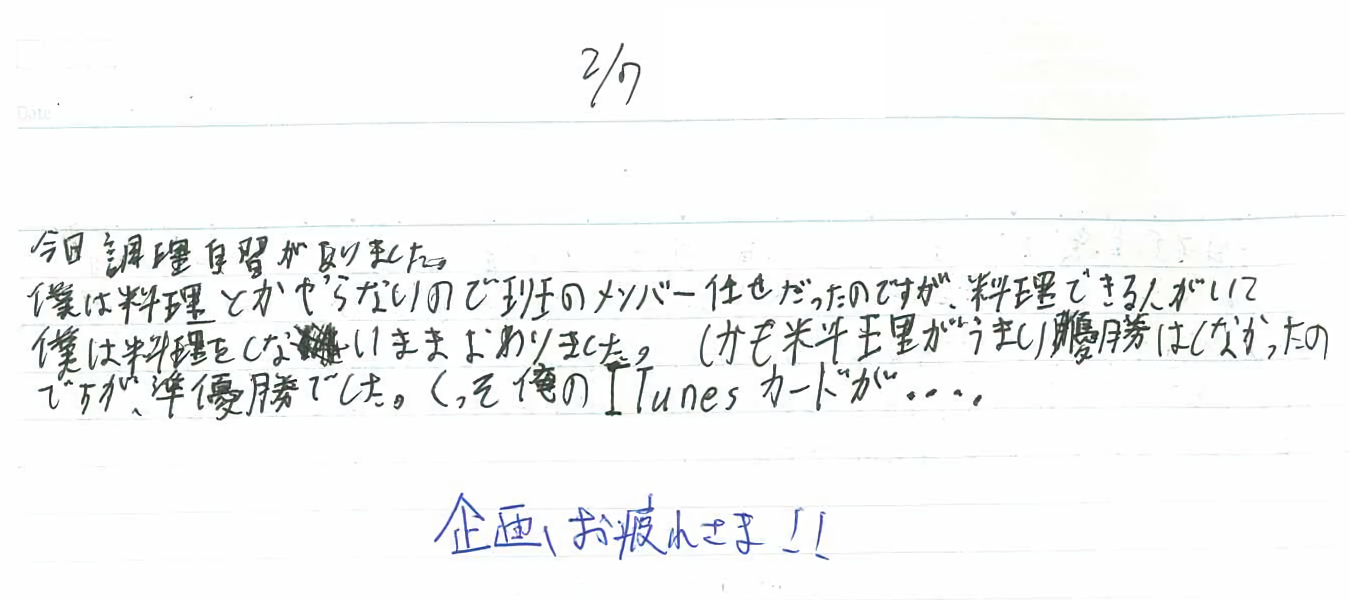 2/7
Date
今回調理自習がありました。
僕は料理とかやらないので班のメンバー任せだったのですが、料理できる人がいて
僕は料理をしないままおわりました。しかも料理がうまい優勝はしなかったの
ですが、準優勝でした。くっそ俺のITunesカードが....
企画、お疲れさま!!